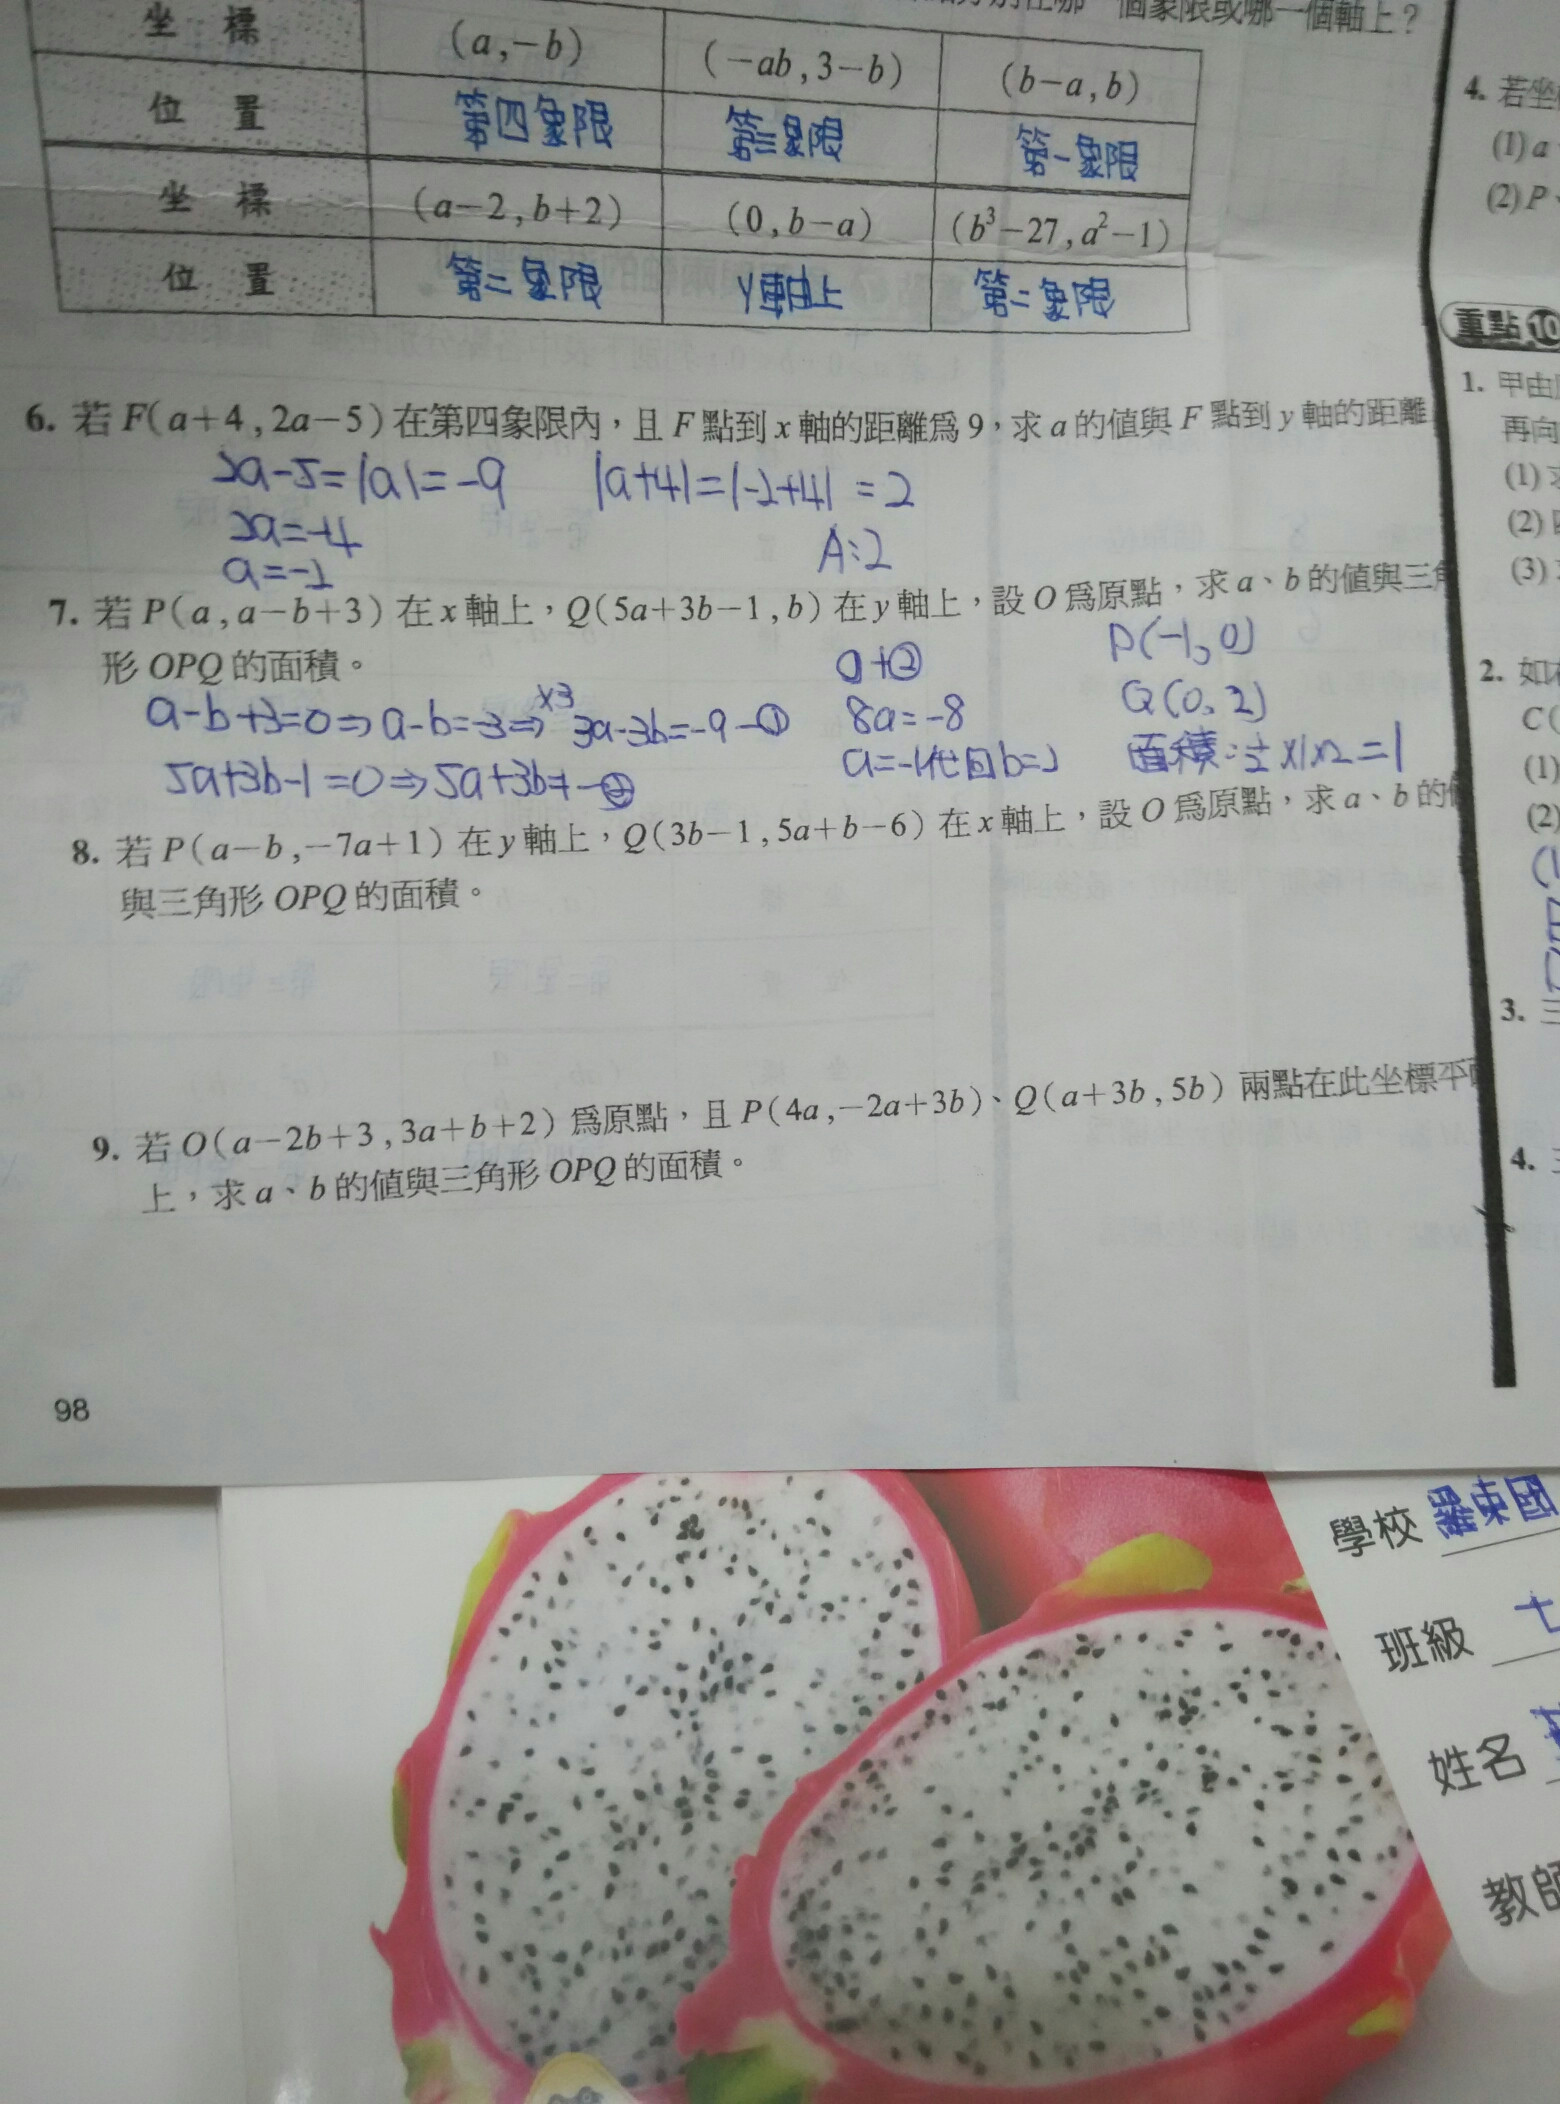 個象限或哪一個軸上？
坐標 (a,－b) (－ab,3－b) (b－a,b)
位置 第四象限 第三象限 第一象限
坐標 (a－2,b+2) (0,b－a) (b³－27,a²－1)
位置 第二象限 y軸上 第二象限
6. 若F(a+4,2a－5)在第四象限內，且F點到x軸的距離為9，求a的值與F點到y軸的距離
2a-5=|a|=-9 |a+4|=|-2+4|=2
2a=-4
a=-2
A:2
7. 若P(a,a－b+3)在x軸上，Q(5a+3b－1,b)在y軸上，設O為原點，求a、b的值與三角
形OPQ的面積。
①+②
P(-1,0)
a-b+3=0⇒a-b=-3⇒×3 3a-3b=-9-① 8a=-8
Q(0,2)
5a+3b-1=0⇒5a+3b=1-② a=-1代回b=2 面積:½×1×2=1
8. 若P(a－b,－7a+1)在y軸上，Q(3b－1,5a+b－6)在x軸上，設O為原點，求a、b的
與三角形OPQ的面積。
9. 若O(a－2b+3,3a+b+2)為原點，且P(4a,－2a+3b)、Q(a+3b,5b)兩點在此坐標平
上，求a、b的值與三角形OPQ的面積。
98
4. 若坐
(1)a
(2)P
重點10
1. 甲由
再向
(1)
(2)
(3)
2. 如
C(
(1)
(2)
3. 三
4.
學校 羅東國
班級 七
姓名
教師